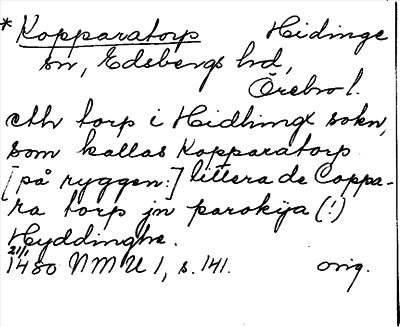 * Kopparatorp Hidinge
sn, Edsbergs hd,
Örebro l.
eth torp i Hidhingx sokn,
som kallas Kopparatorp
[på ryggen:] littera de Coppa-
ra torp jn parokija (!)
Hyddinghe.
21/1
1480 NMU 1, s. 141. orig.